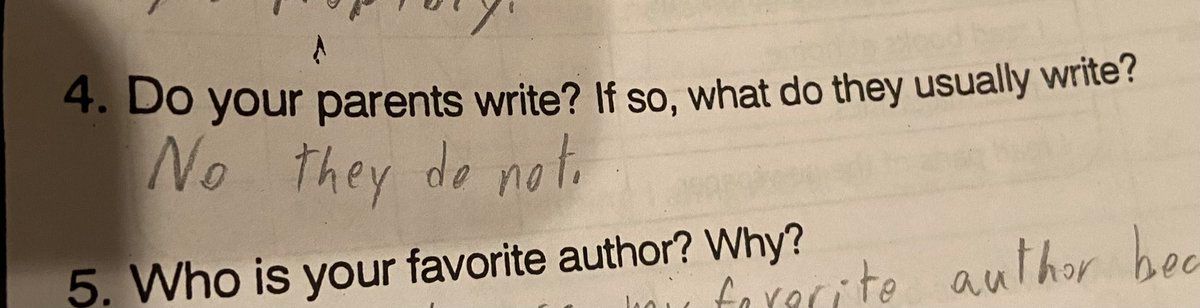 4. Do your parents write? If so, what do they usually write?
No they do not.
5. Who is your favorite author? Why?
favorite author bec